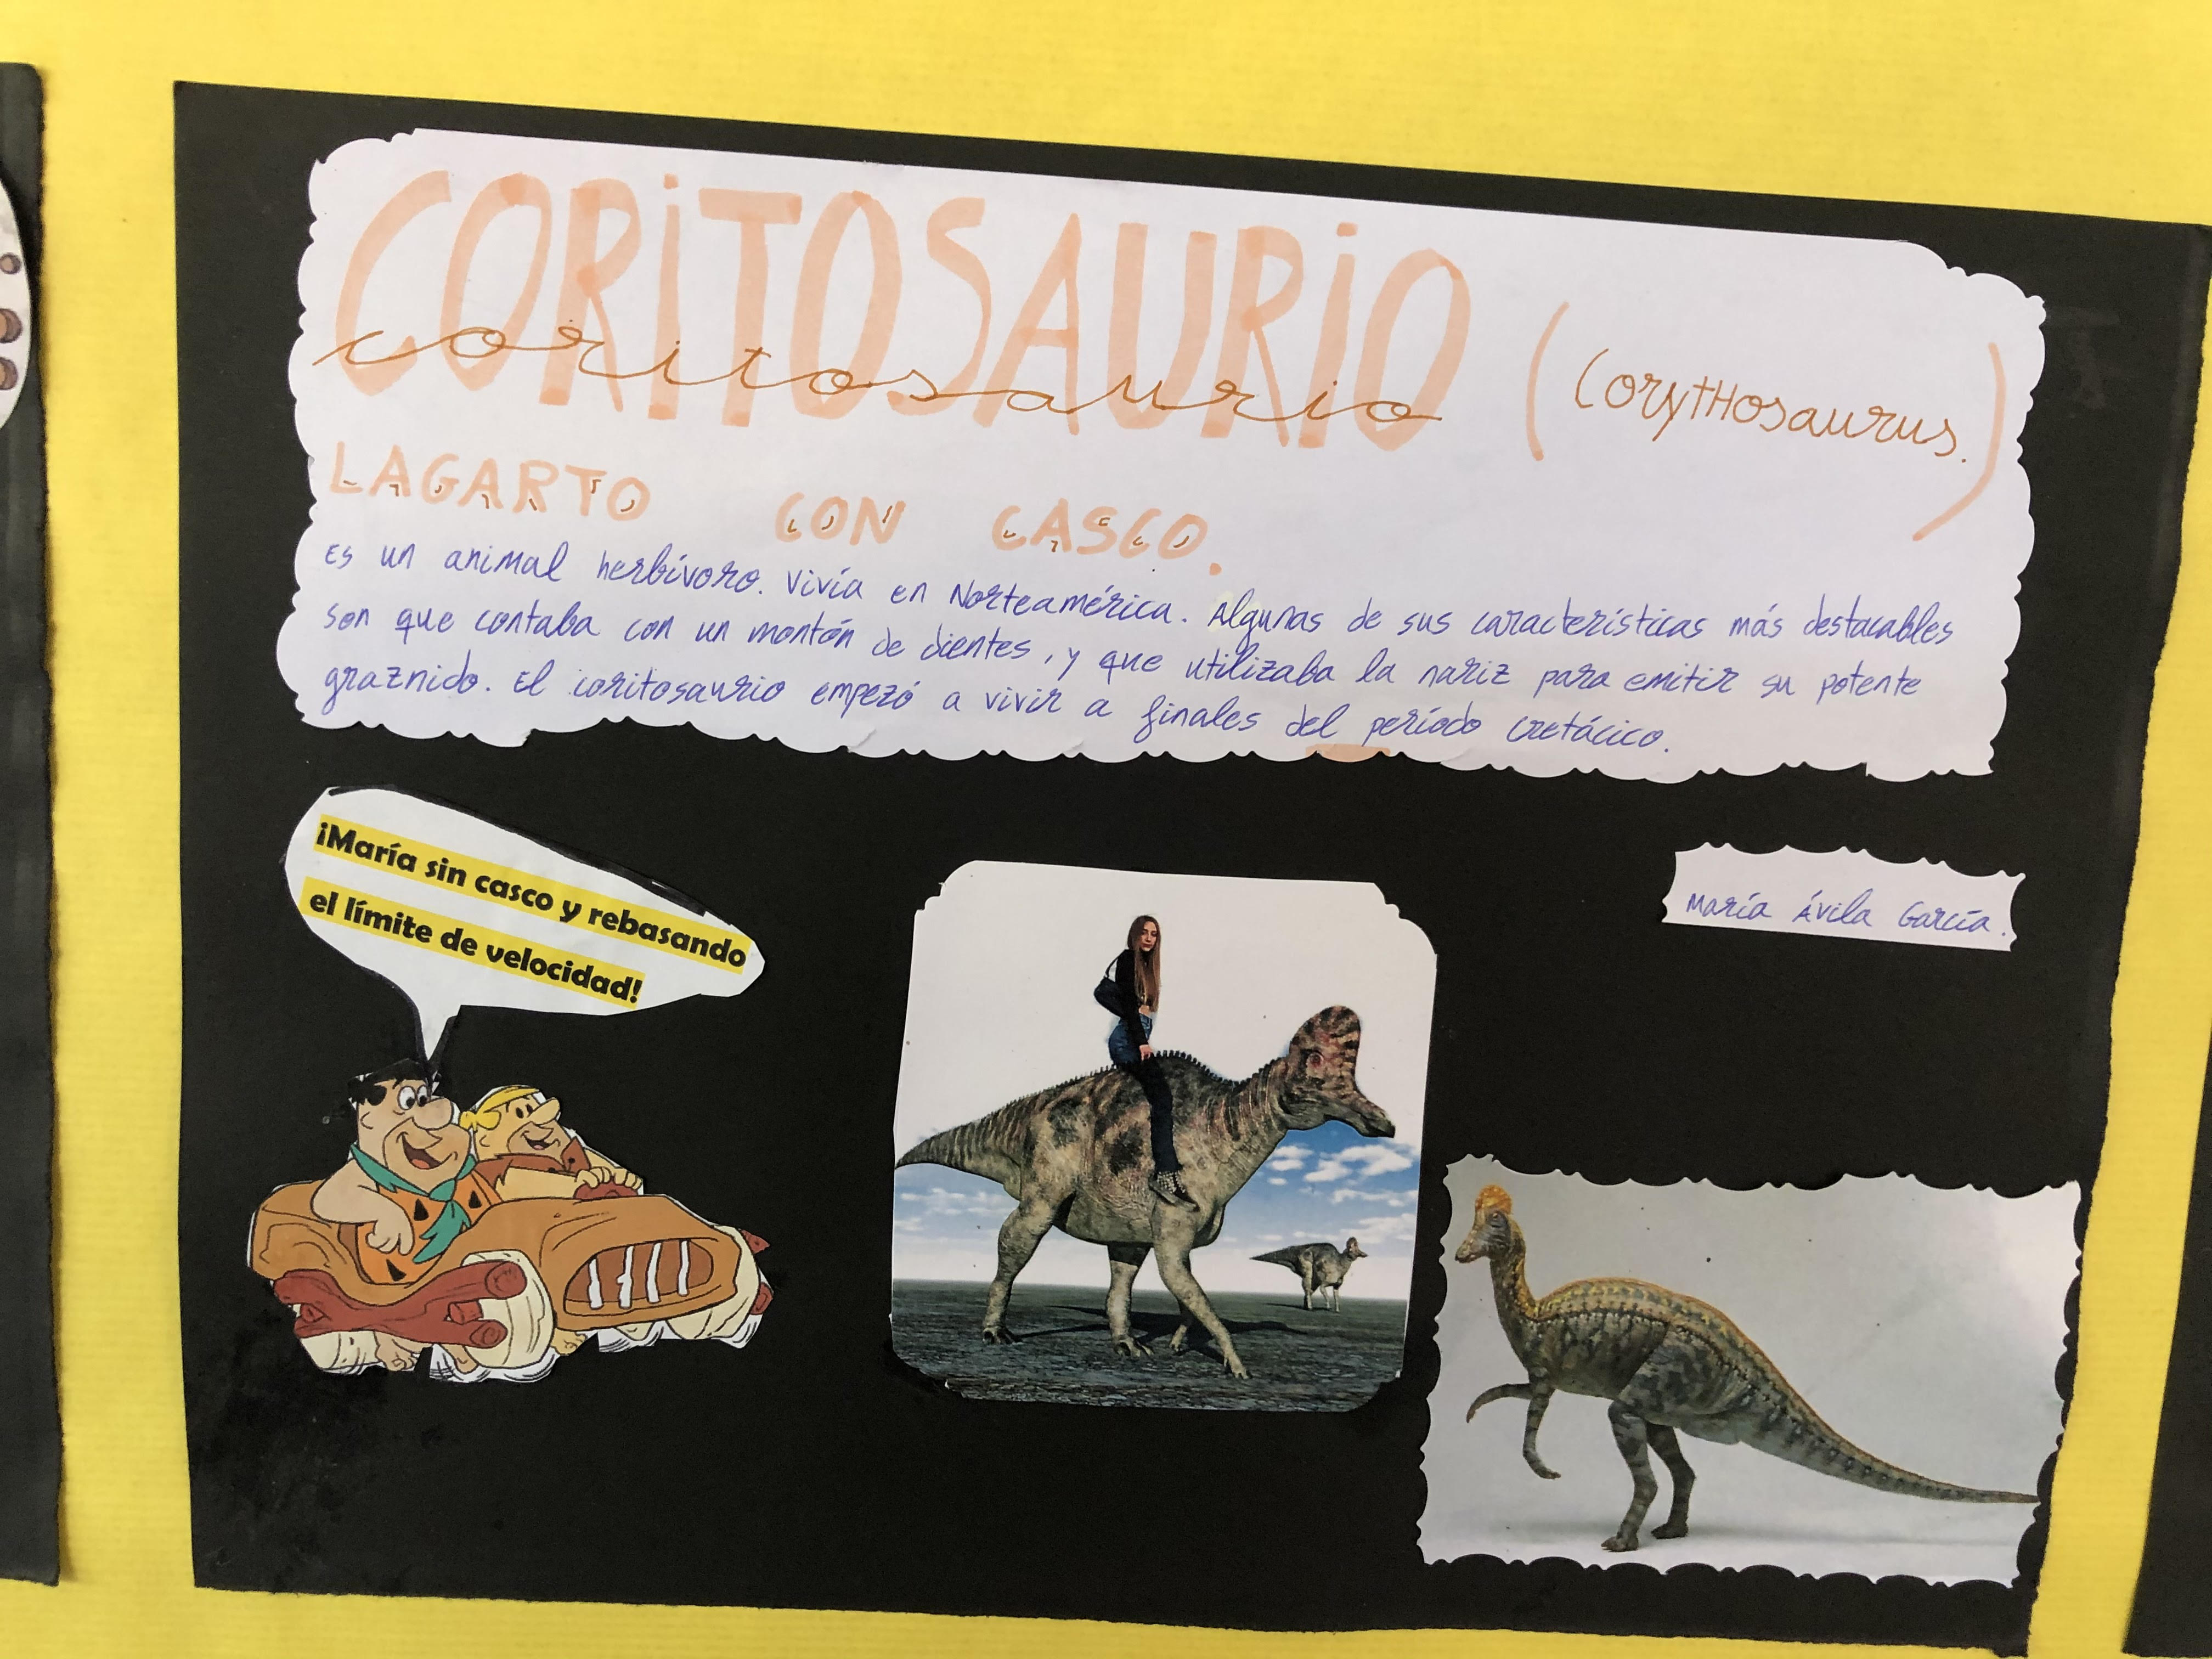 CORiTOSAURiO
coritosaurio (CorytHosaurus.)
LAGARTO CON CASCO.
Es un animal herbívoro. Vivía en Norteamérica. Algunas de sus características más destacables
son que contaba con un montón de dientes, y que utilizaba la nariz para emitir su potente
graznido. El coritosaurio empezó a vivir a finales del período cretácico.
¡María sin casco y rebasando
el límite de velocidad!
María Ávila García.